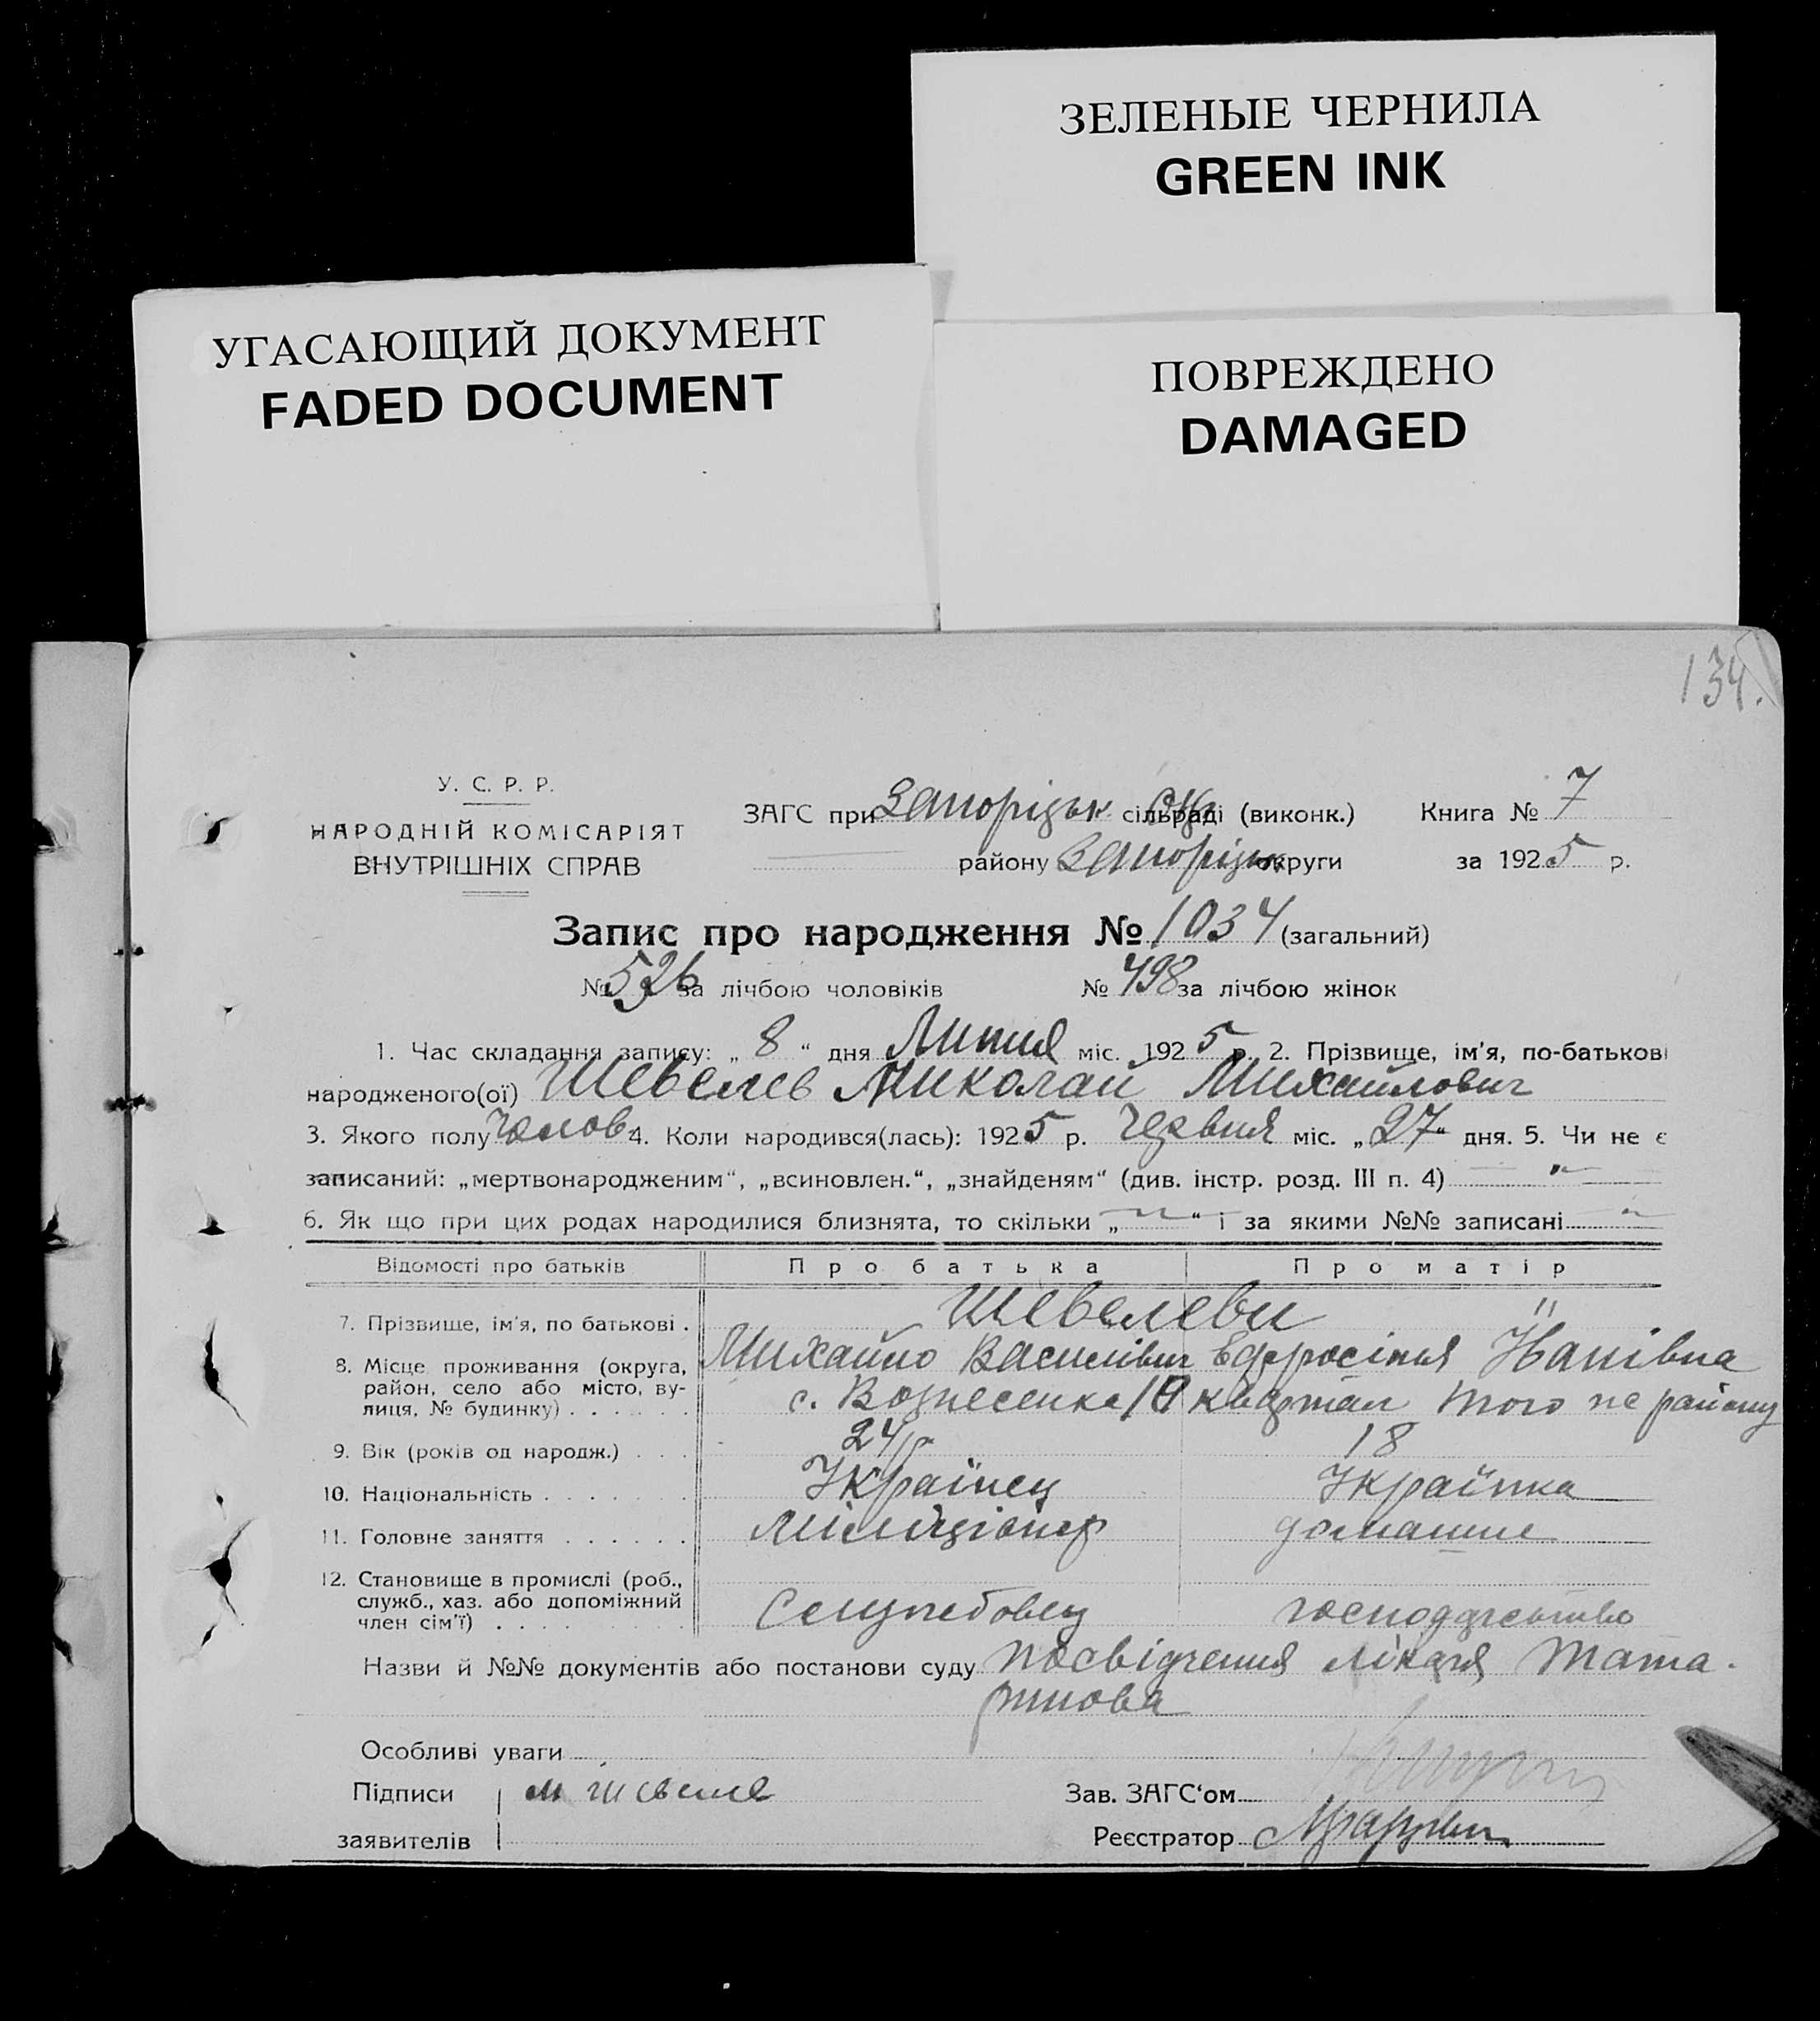 ЗЕЛЕНЫЕ ЧЕРНИЛА
GREEN INK
УГАСАЮЩИЙ ДОКУМЕНТ
FADED DOCUMENT
ПОВРЕЖДЕНО
DAMAGED
134.
У. С. Р. Р.
НАРОДНІЙ КОМІСАРІЯТ
ВНУТРІШНІХ СПРАВ
ЗАГС при Запоріцьк сільраді (виконк.) Книга № 7
району Запоріцьк округи за 1925 р.
Запис про народження № 1034 (загальний)
№ 526 за лічбою чоловіків № 498 за лічбою жінок
1. Час складання запису: „ 8 “ дня Липня міс. 1925 р. 2. Прізвище, ім'я, по-батькові
народженого(ої) Шевелев Миколай Михайлович
3. Якого полу чолов. 4. Коли народився(лась): 1925 р. Червня міс. „27“ дня. 5. Чи не є
записаний: „мертвонародженим“, „всиновлен.“, „знайденям“ (див. інстр. розд. III п. 4) — " —
6. Як що при цих родах народилися близнята, то скільки „ — " — “ і за якими №№ записані "
Відомості про батьків Про батька Про матір
7. Прізвище, ім'я, по батькові . Шевелеви "
8. Місце проживання (округа, район, село або місто, вулиця, № будинку) . . . . . . Михайло Василівич Ефросінія Йванівна
с. Вознесенка 19 квартал того не району
9. Вік (років од народж.) . . . 24 р 18
10. Національність . . . . . . . Українец Українка
11. Головне заняття . . . . . . Міліціонер домашне
12. Становище в промислі (роб., служб., хаз. або допоміжний член сім'ї) . . . . Служебовец господарство
Назви й №№ документів або постанови суду посвідчення лікаря Тата-
ринова
Особливі уваги
Підписи М Шевеле
Зав. ЗАГС‘ом
заявителів
Реєстратор